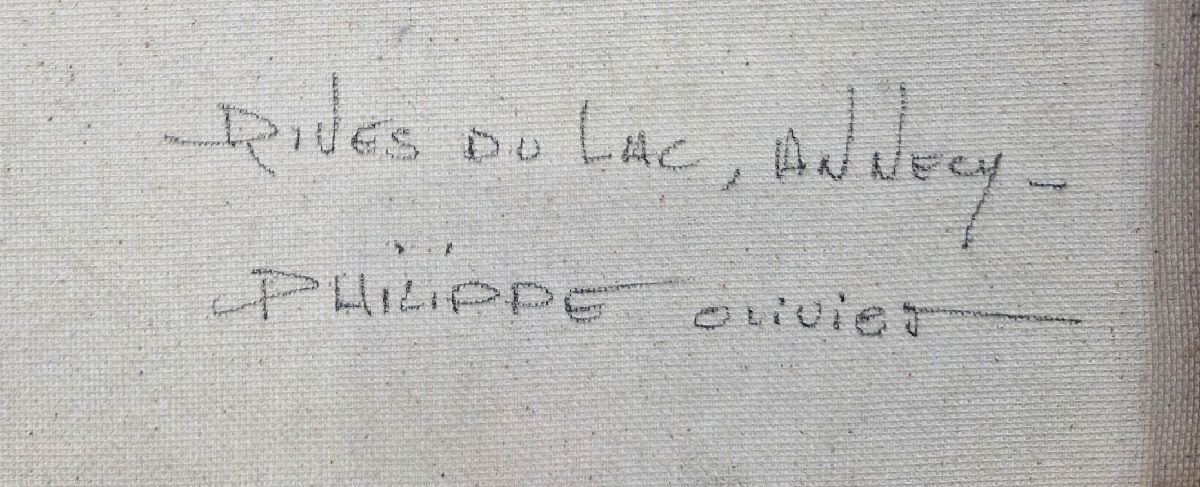 RIVES DU LAC, ANNECY -
PHILIPPE OLIVIER